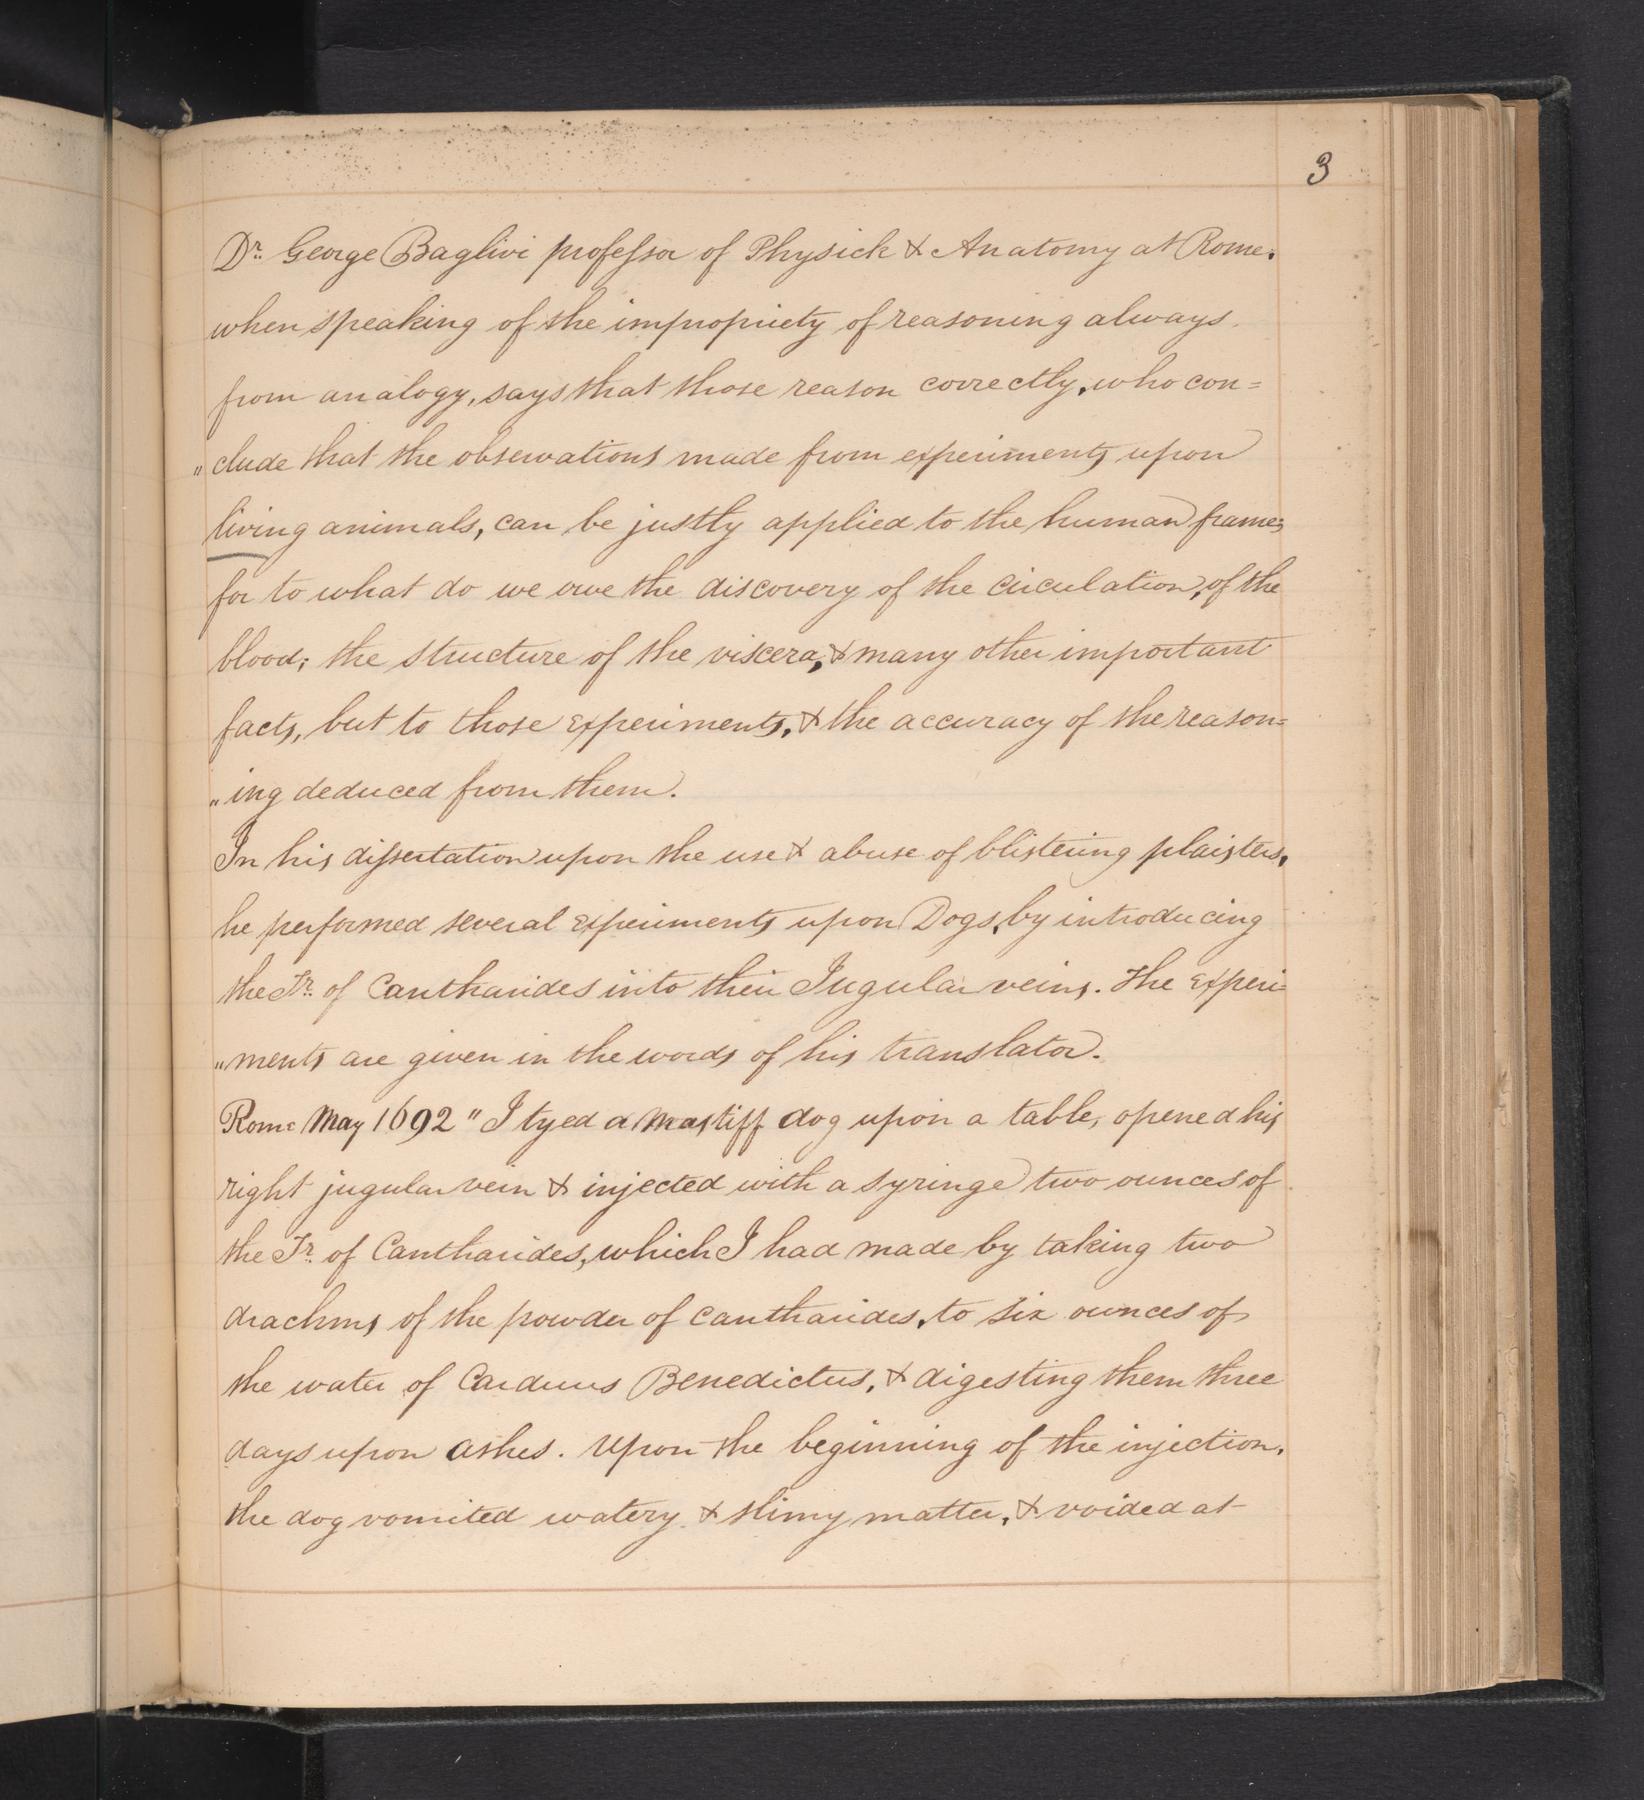 3
Dr. George Baglivi professor of Physick & Anatomy at Rome.
when speaking of the impropriety of reasoning always
from analogy, says that those reason correctly, who con=
"clude that the observations made from experiments upon
living animals, can be justly applied to the human frame;
for to what do we owe the discovery of the circulation, of the
blood; the structure of the viscera, & many other important
facts, but to those experiments, & the accuracy of the reason=
"ing deduced from them.
In his dissertation upon the use & abuse of blistering plaisters,
he performed several experiments upon Dogs, by introducing
the Tr. of Cantharides into their Jugular veins. The Experi=
"ments are given in the words of his translator.
Rome May 1692 " I tyed a Mastiff dog upon a table, opened his
right jugular vein & injected with a syringe two ounces of
the Tr. of Cantharides, which I had made by taking two
drachms of the powder of cantharides, to six ounces of
the water of Carduus Benedictus, & digesting them three
days upon ashes. Upon the beginning of the injection,
the dog vomited watery & slimy matter, & voided at